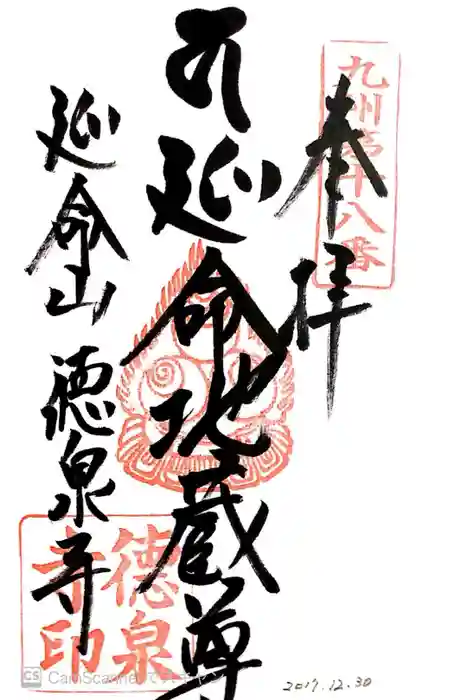 九州第十八番
奉拝
延命地蔵尊
延命山 徳泉寺
徳泉寺印
2017.12.30
CS CamScannerでスキャン